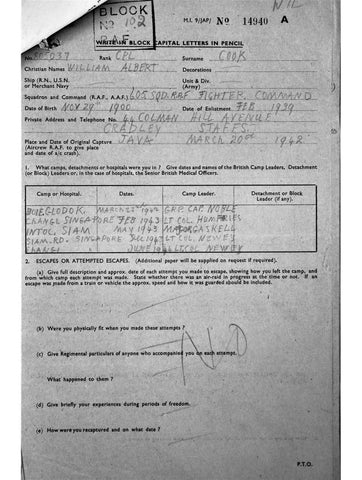 NIL
BLOCK
Nº 102
R.A.F.
M.I. 9/(JAP) Nº 14940 A
WRITE IN BLOCK CAPITAL LETTERS IN PENCIL
No. 805037 Rank CPL Surname COOK
Christian Names WILLIAM ALBERT Decorations
Ship (R.N., U.S.N. or Merchant Navy) Unit & Div. (Army)
Squadron and Command (R.A.F., A.A.F.) 605 SQD. RAF FIGHTER COMMAND
Date of Birth NOV 29 1900 Date of Enlistment FEB 1939
Private Address and Telephone No. 44 COLMAN HILL AVENUE
CRADLEY STAFFS.
Place and Date of Original Capture JAVA MARCH 20 1942
(Aircrew R.A.F. to give place
and date of a/c crash).
1. What camps, detachments or hospitals were you in? Give dates and names of the British Camp Leaders, Detachment
(or Block) Leaders or, in case of hospitals, the Senior British Medical Officers.
Camp or Hospital. Dates. Camp Leader. Detachment or Block Leader (if any).
BOIE GLODOK. MARCH 1942 GRP. CAP. NOBLE
CHANGI SINGAPORE FEB 1943 LT COL. HUMFRIES
INTOC, SIAM MAY 1943 GASKELL
SIAM RD. SINGAPORE DEC 1943 LT COL. NEWEY
CHANGI JUNE LT COL. NEWEY
2. ESCAPES OR ATTEMPTED ESCAPES. (Additional paper will be supplied on request if required).
(a) Give full description and approx. date of each attempt you made to escape, showing how you left the camp, and
from which camp each attempt was made. State whether there was an air-raid in progress at the time or not. If an
escape was made from a train or vehicle the approx. speed and how it was guarded should be included.
(b) Were you physically fit when you made these attempts?
NO
(c) Give Regimental particulars of anyone who accompanied you on each attempt.
What happened to them?
(d) Give briefly your experiences during periods of freedom.
(e) How were you recaptured and on what date?
P.T.O.